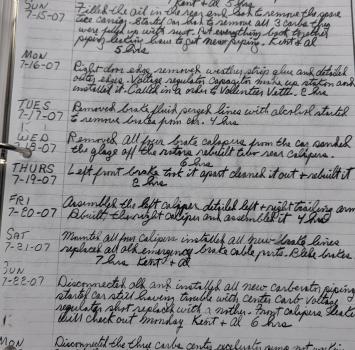 Kent + Al 5 hrs
SUN
7-15-07 Filled the oil in the rear and had to remove the spare
tire carrier. Started car had to remove all 3 carbs they
were full up with rust. Put everything back together
piping leaking have to get new piping. Kent + Al
5 hrs
MON
7-16-07 Right door edge removed weather strip glue and detailed
outer edges. Voltage regulator capacitor makes car station and
installed it. Called in a order to Volunteer Vette. 2 hrs
TUES
7-17-07 Removed brake fluid purged lines with alcohol started
to remove brakes from car. 4 hrs
WED
7-18-07 Removed all four brake calipers from the car sanded
the glaze off the rotors rebuilt two rear calipers.
6 hrs
THURS
7-19-07 Left front brake took it apart cleaned it out + rebuilt it
2 hrs
FRI
7-20-07 Assemble the left caliper detailed left + right trailing arm
Rebuilt the right caliper and assembled it 4 hrs
SAT
7-21-07 Mounted all four calipers installed all new brake lines
replaced all old emergency brake cable parts. Bleed brakes
7 hrs Kent + Al
SUN
7-22-07 Disconnected all and installed all new carberator piping
startup car still having trouble with center carb Voltage
regulator shot replaced with another. Front calipers leaking
will check out Monday Kent + Al 6 hrs
MON
Disconnected the three carbs center